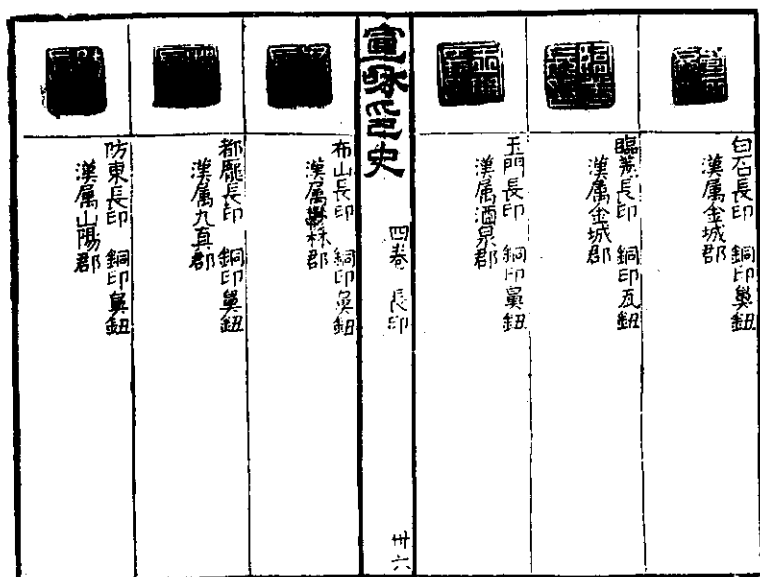 白石長印　銅印鼻鈕
漢属金城郡
臨羌長印　銅印瓦鈕
漢属金城郡
玉門長印　銅印鼻鈕
漢属酒泉郡
宣和印史
四卷　長印
卅六
布山長印　銅印鼻鈕
漢属鬱林郡
都龐長印　銅印鼻鈕
漢属九真郡
防東長印　銅印鼻鈕
漢属山陽郡